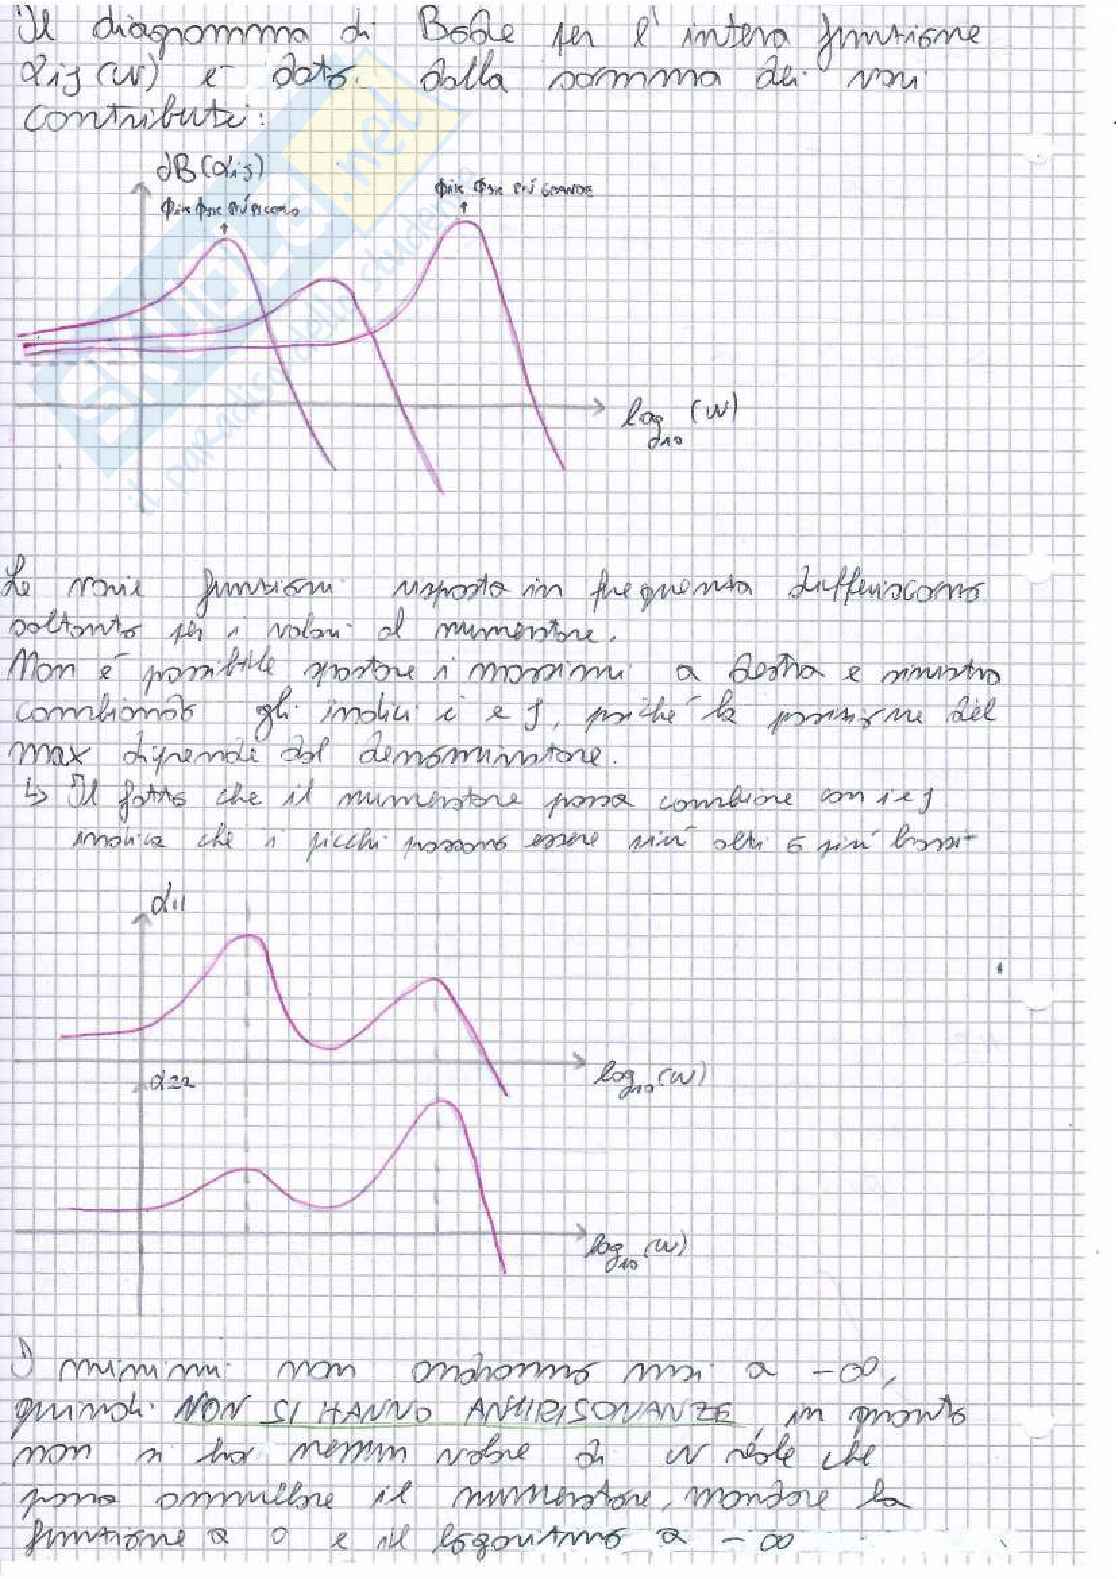 Il diagramma di Bode per l'intera funzione
αij(ω) è dato dalla somma dei vari
contributi:
dB(αij)
ϕik ϕjk più piccolo
ϕik ϕjk più grande
log10 (ω)
Le varie funzioni risposta in frequenza differiscono
soltanto per i valori al numeratore.
Non è possibile spostare i massimi a destra e sinistra
cambiando gli indici i e j, poiché la posizione del
max dipende dal denominatore.
↳ Il fatto che il numeratore possa cambiare con i e j
indica che i picchi possono essere più alti o più bassi
α11
log10 (ω)
α22
log10 (ω)
I minimi non andranno mai a -∞,
quindi NON SI HANNO ANTIRISONANZE, in quanto
non si ha nessun valore di ω reale che
possa annullare il numeratore, mandare la
funzione a 0 e il logaritmo a -∞
SKUOLA.net
il paradiso dello studente